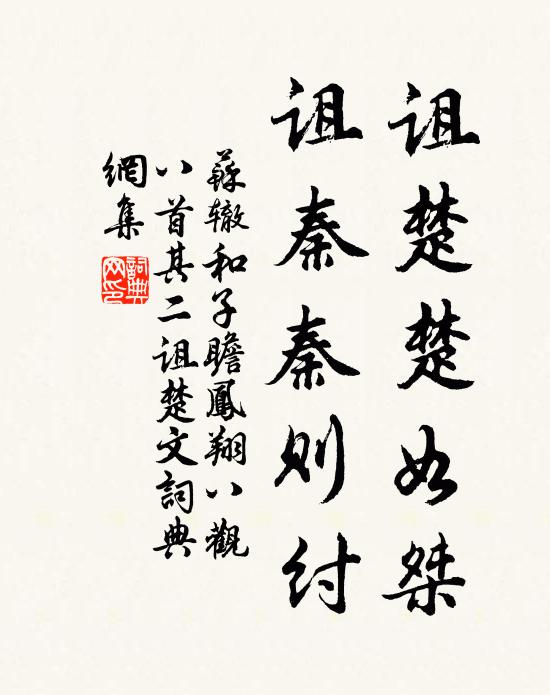 诅楚楚如桀
诅秦秦则纣
蘇辙和子瞻鳳翔八觀
八首其二诅楚文詞典
網集
詞典
网印